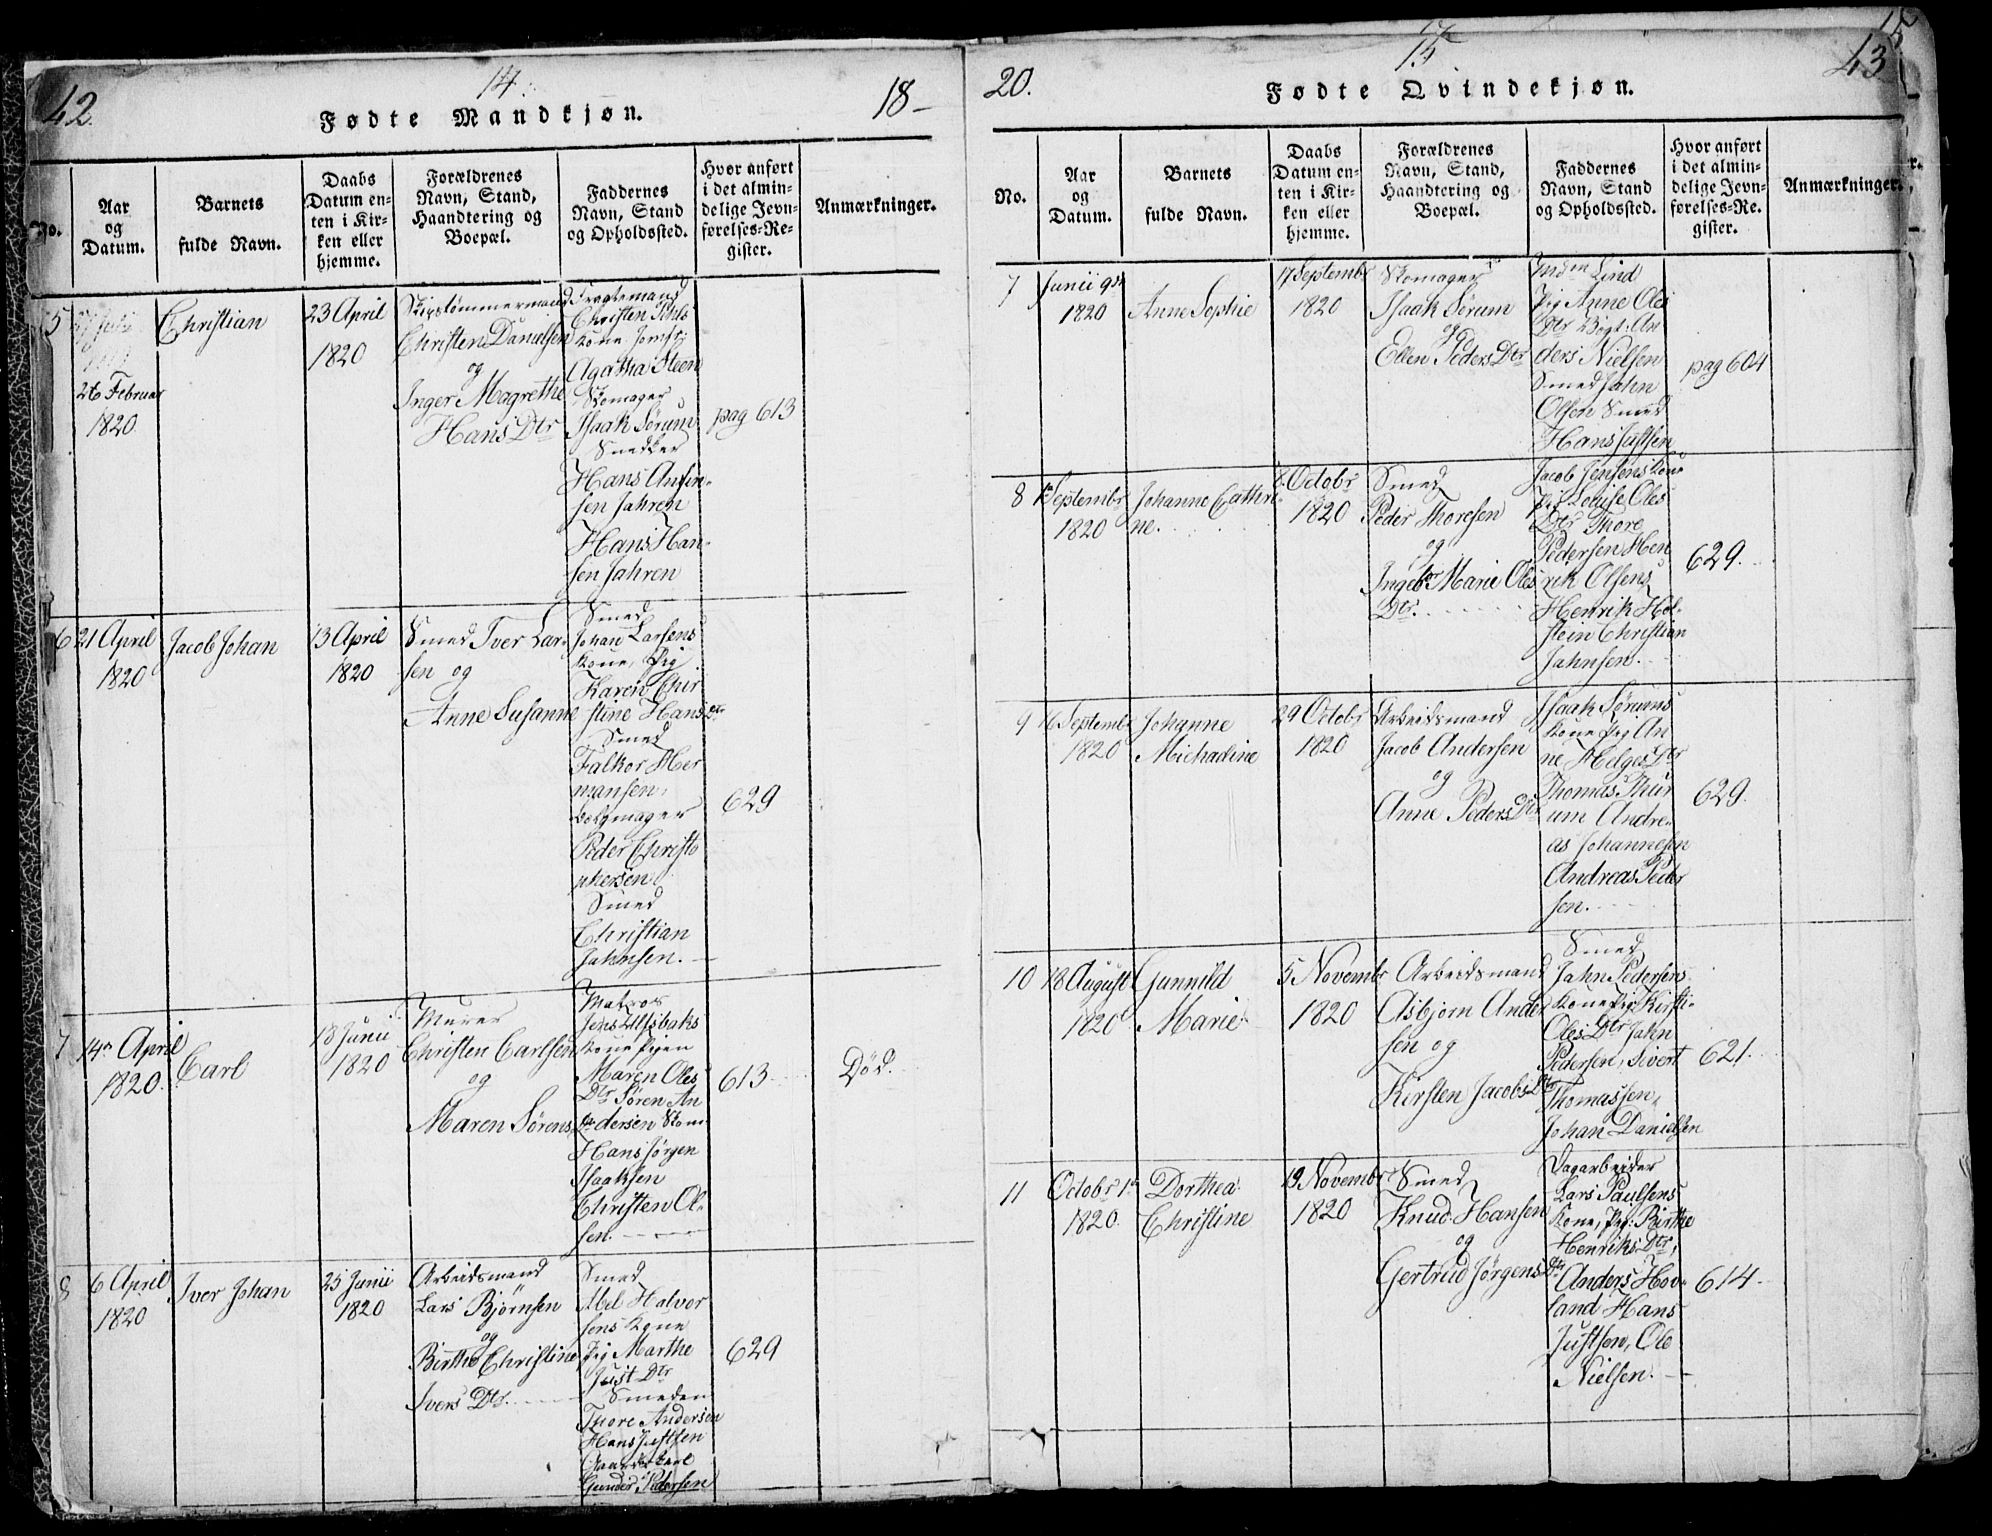 42.
14.
18-
Fødte Mandkjøn.
No.
Aar
og
Datum.
Barnets
fulde Navn.
Daabs
Datum en-
ten i Kir-
ken eller
hjemme.
Forældrenes
Navn, Stand,
Haandtering og
Boepæl.
Faddernes
Navn, Stand
og Opholdssted.
Hvor anført
i det almin-
delige Jevn-
førelses-Re-
gister.
Anmærkninger.
5
26 Februar
1820
Christian
23 April
1820
Skipstømmermand
Christen Danielsen
og
Inger Magrethe
Hans Dtr
Fragtemand
Christen
Kone Jomf:
Agatha Steen
Skomager
Isaak Sørum
Snedker
Hans Anfin-
sen Jahren
Hans Han-
sen Jahren
pag 613
6
21 April
1820
Jacob Johan
13 April
1820
Smed Iver Lar-
sen og
Anne Susanne
Smed
Johan Larsens
Kone, Pig
Karen Chir
stine Hans Dtr
Smed
Falkor Her
mansen,
Peder Christo
phersen
Smed
Christian
Jahnsen.
629
7
14 April
1820.
Carl
18 Junii
1820
Murer
Christen Carlsen
og
Maren Sørens
Matros
Jens Ulfsbaks
Kone Pigen
Maren Oles
Dtr Søren An
dersen Skom
Hans Jørgen
Isaaksen
Christen Ol-
sen.
613
Død.
8
6 April
1820
Iver Johan
25 Junii
1820
Arbeidsmand
Lars Bjørnsen
og
Birthe Christine
Ivers Dtr.
Smed
Abel Halvor
sens Kone
Pig Marthe
Just Dtr
Smeden
Thore Andersen
Hans Justsen
Gaardskarl
Gunder Pedersen
629
20.
15
43
15
Fødte Qvindekjøn.
No.
Aar
og
Datum.
Barnets
fulde Navn.
Daabs
Datum en-
ten i Kir-
ken eller
hjemme.
Forældrenes
Navn, Stand,
Haandtering og
Boepæl.
Faddernes
Navn, Stand
og Opholdssted.
Hvor anført
i det almin-
delige Jevn-
førelses-Re-
gister.
Anmærkninger.
7
Junii 9de
1820
Anne Sophie
17 Septembr
1820
Skomager
Isaak Sørum
og
Ellen Peders Dtr
Mdm Lind
Pig Anne Oles
Dtr Bogt: An
ders Nielsen
Smed Jahn
Olsen Smed
Hans Justsen
pag 604
8
1 Septembr
1820
Johanne Cathri-
ne.
8 Octobr
1820
Smed
Peder Thoresen
og
Ingebr Marie Oles
Dtr.
Jacob Jensens Kone
Pig Lovise Oles
Dtr Thore
Pedersen Hen
rik Olsens
Henrik Hol-
stein Christian
Jahnsen.
629.
9
Septembr
1820
Johanne
Michaeline
29 Octobr
1820
Arbeidsmand
Jacob Andersen
og
Anne Peders Dtr
Isaak Sørums
Kone Pig An
ne Helges Dtr
Thomas Thur
um Andre-
as Johannesen
Andreas Peder
sen.
629.
10
18 August
1820
Gunnild
Marie
5 Novembr
1820
Arbeidsmand
Asbjørn Ander
sen og
Kirsten Jacobs Dtr
Smed
Jahn Pedersens
Kone Pig Kirsti-
Oles Dtr Jahn
Pedersen, Sivert
Thomassen,
Johan Danielsen
621.
11
Octobr 1
1820.
Dorthea
Christine
19 Novembr
1820
Smed
Knud Hansen
og
Gertrud Jørgens Dtr
Dagarbeider
Lars Paulsens
Kone, Pig: Birthe
Henriks Dtr,
Anders Hov-
land Hans
Justsen, Ole
Nielsen.
614.